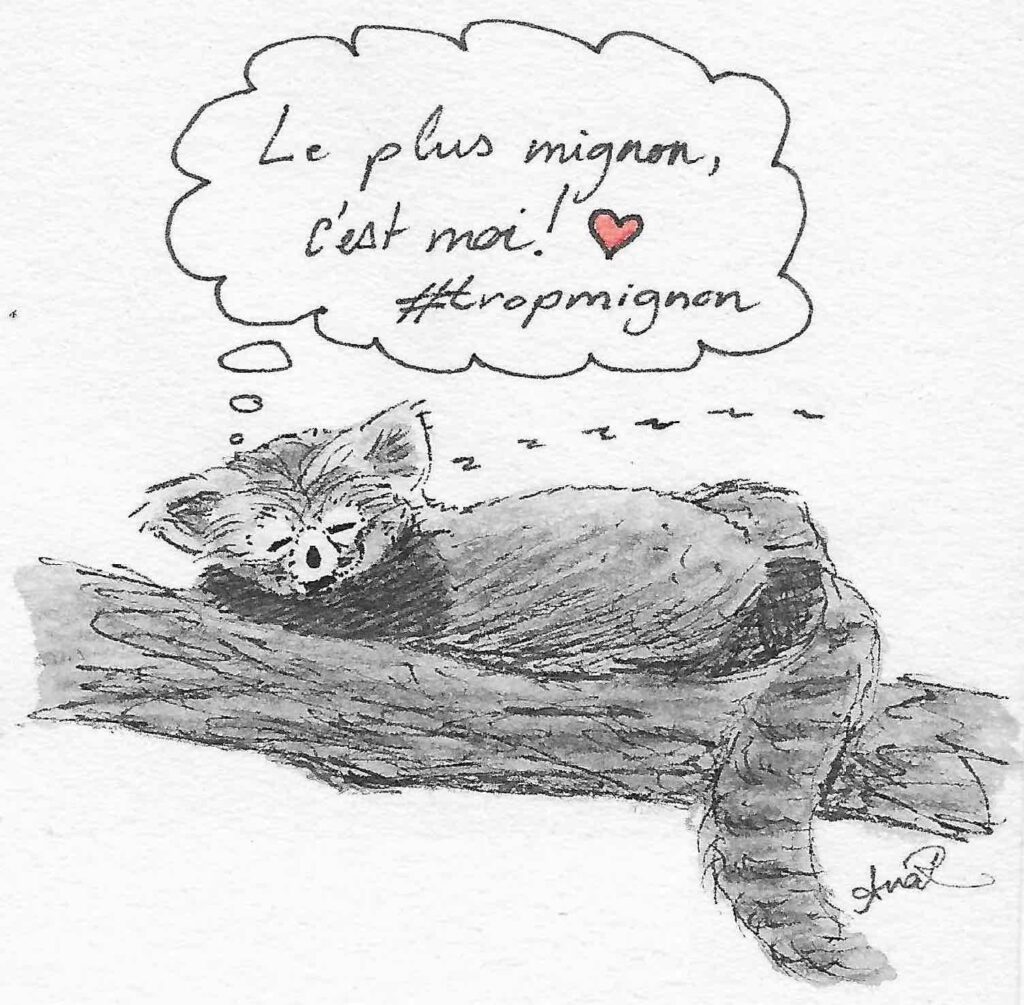 Le plus mignon,
c'est moi! ❤
#tropmignon
z z z z z z